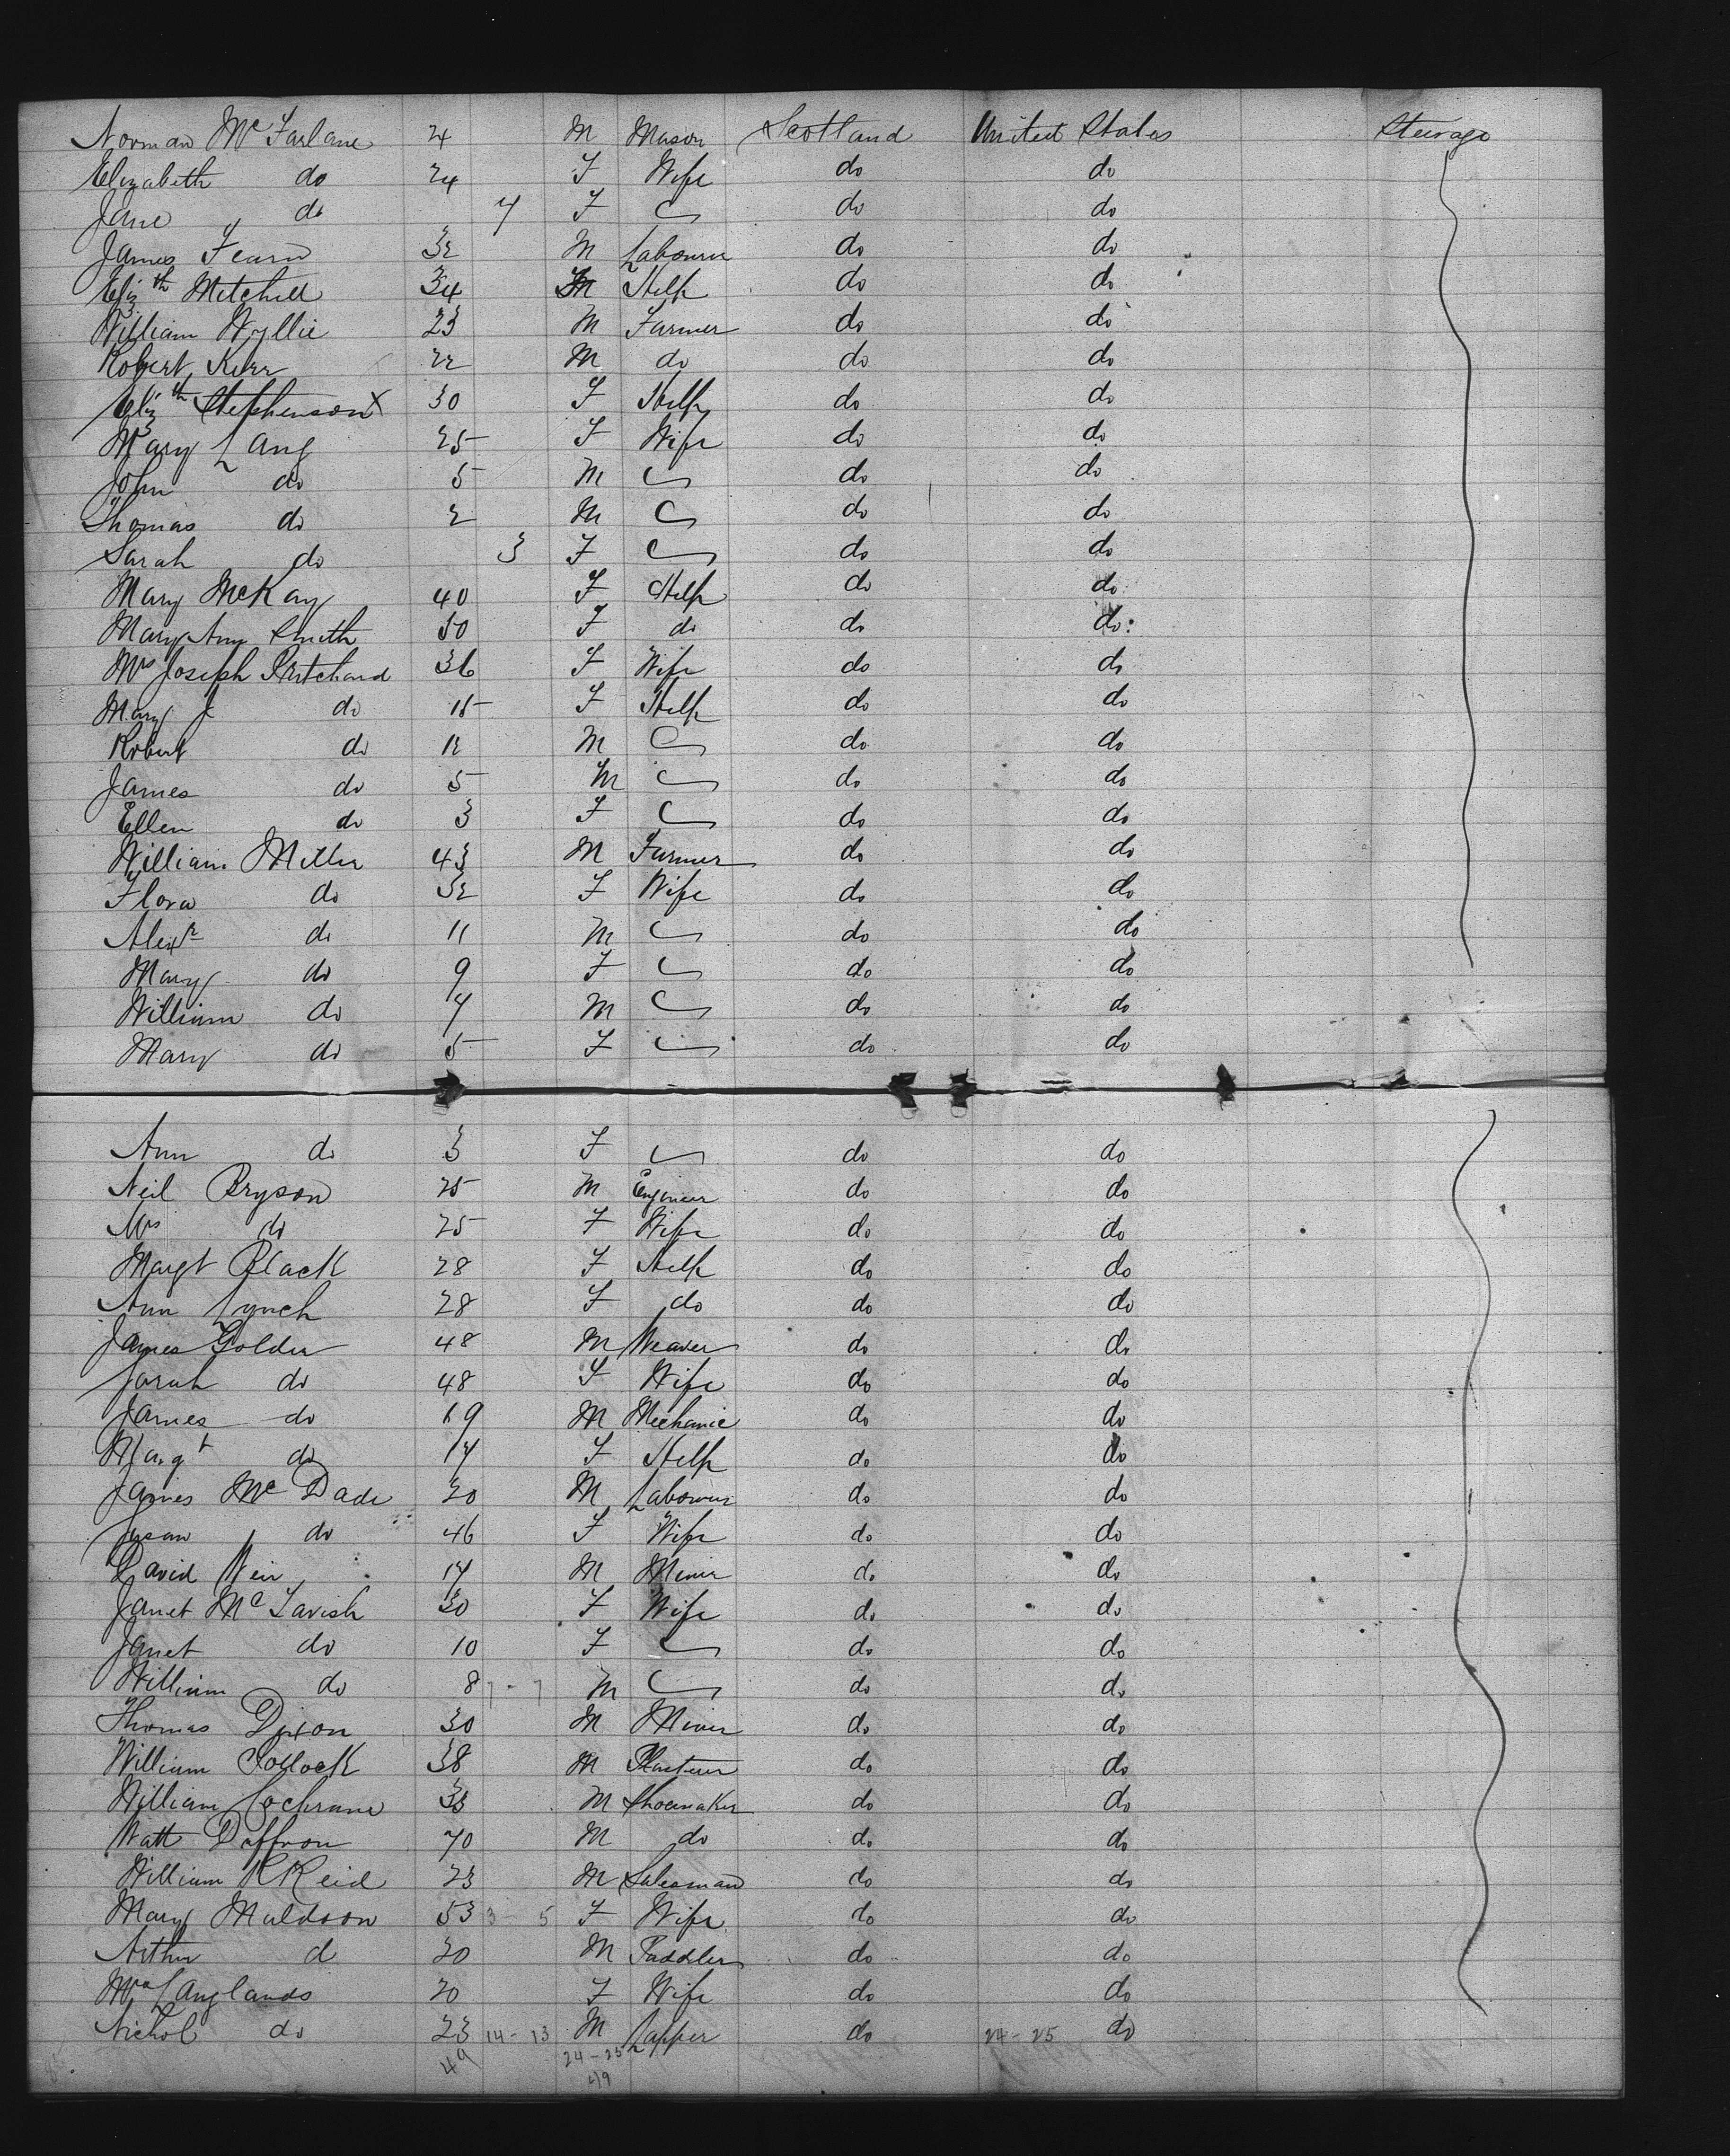 Norman McFarlane 24 M Mason Scotland United States Steerage
Elizabeth do 24 F Wife do do
Jane do 7 F C do do
James Fearn 32 M Labourer do do
Elizth Mitchell 34 Help do do
William Wyllie 23 M Farmer do do
Robert Kerr 22 M do do do
Elizth Stephenson X 30 F Help do do
Mary Lang 25 F Wife do do
John do 5 M C do do
Thomas do 2 M C do do
Sarah do 3 F C do do
Mary McKay 40 F Help do do
Mary Ann Smith 50 F do do do
Mrs Joseph Pritchard 36 F Wife do do
Mary J do 15 F Help do do
Robert do 12 M C do do
James do 5 M C do do
Ellen do 3 F C do do
William Miller 43 M Farmer do do
Flora do 32 F Wife do do
Alexr do 11 M C do do
Mary do 9 F C do do
William do 7 M C do do
Mary do 5 F C do do
Ann do 3 F C do do
Neil Bryson 25 M Engineer do do
Mrs do 25 F Wife do do
Margt Black 28 F Help do do
Ann Lynch 28 F do do do
James Golder 48 M Weaver do do
Sarah do 48 F Wife do do
James do 19 M Mechanic do do
Margt do 17 F Help do do
James McDade M Labourer do do
Susan do 46 F Wife do do
David Weir 17 M Miner do do
Janet McTavish 30 F Wife do do
Janet do 10 F C do do
William do 8 7 - 7 M C do do
Thomas Dixon 30 M Miner do do
William Pollock 38 M Plasterer do do
William Cochrane 33 M Shoemaker do do
Watt 70 M do do do
William R Reid 23 M Salesman do do
Mary Muldoon 53 3 - 5 F Wife do do
Arthur d 20 M do do
Mrs Langlands 20 F Wife do do
Nichol do 23 14 - 13 M Lapper do 24 - 25 do
49 24 - 25
49